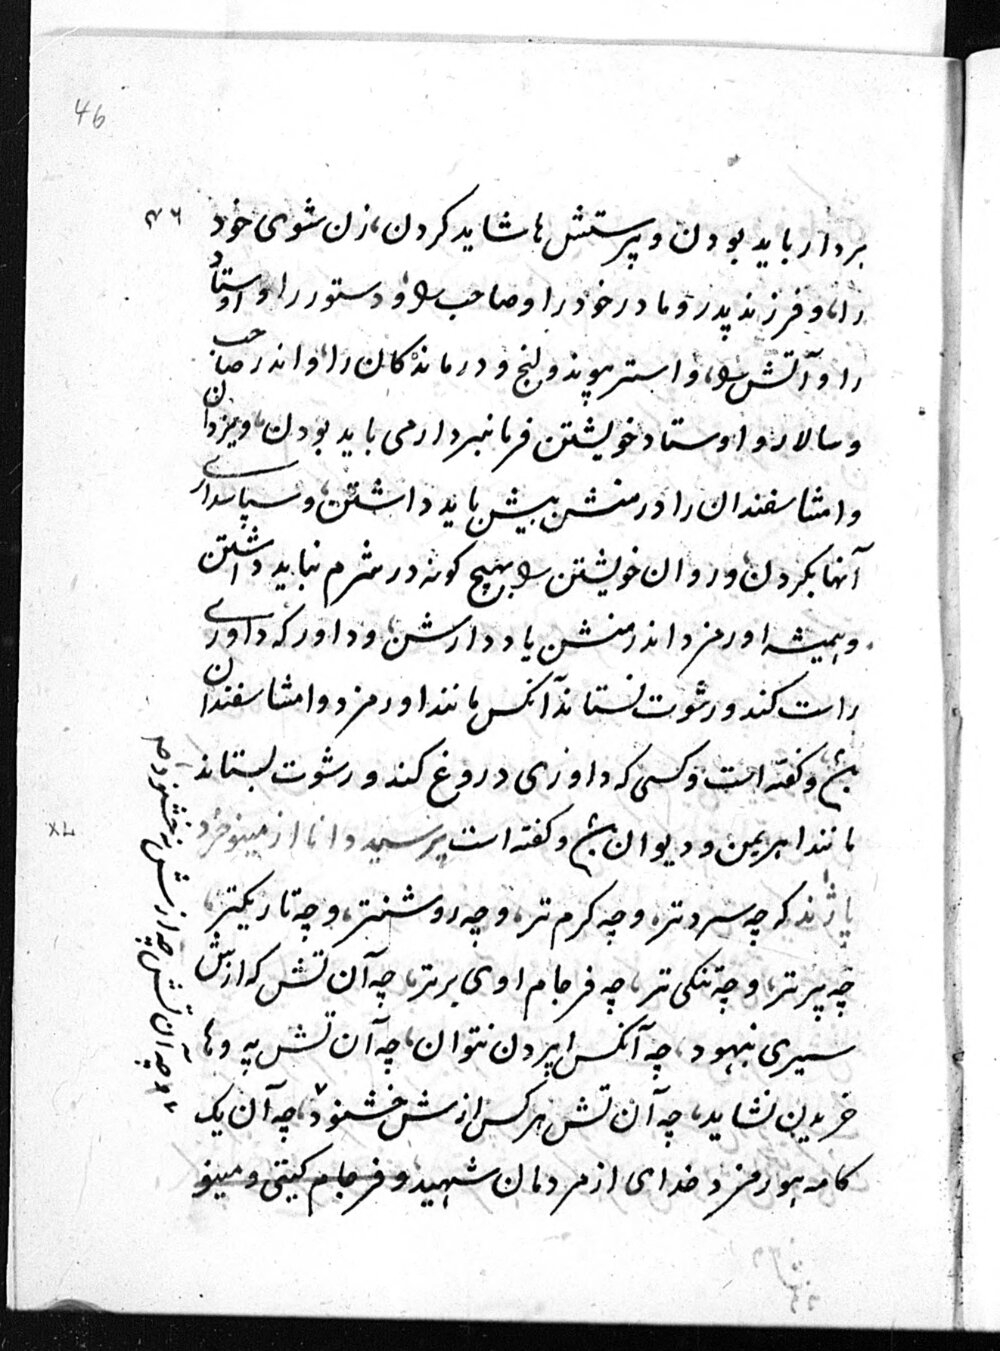 46
۴۶
بردار باید بودن و پرستش ها شاید کردن، زن شوی خود
را، و فرزند پدر و مادر خود را و صاحب را و دستور را و اوستاد
را و آتش را، و استر پوند و لنج و درماندگان را و اندر صاحب
و سالار و اوستاد خویشتن فرمانبرداری باید بودن، و یزدان
و امشاسفندان را در منشن بیش باید داشتن و سپاسداری
آنها بکردن، و روان خویشتن را بهیچ کونه در شرم نباید داشتن
و همیشه اورمزد اندر منشن یاد دارشن، و داور که داوری
راست کند و رشوت نستاند آنکس مانند اورمزد و امشاسفندان
و کفته است و کسی که داوری دروغ کند و رشوت بستاند
مانند اهریمن و دیوان و کفته است پرسید دانا از مینوخرد
XL
پاژند که چه سردتر، و چه کرم تر، و چه روشنتر، و چه تاریکتر،
چه پرتر، و چه تنکی تر، چه فرجام اوی برتر، چه آن تش که ازش
سیری نبهود، چه آنکس اپردن نتوان، چه آن تش په وها
خریدن نشاید، چه آن تش هر کس ازش خشنود، چه آن یک
کامه هورمزد خدای از مردمان شهید و فرجام کیتی و مینو
و چه آن تش چه ازش نه خشنود